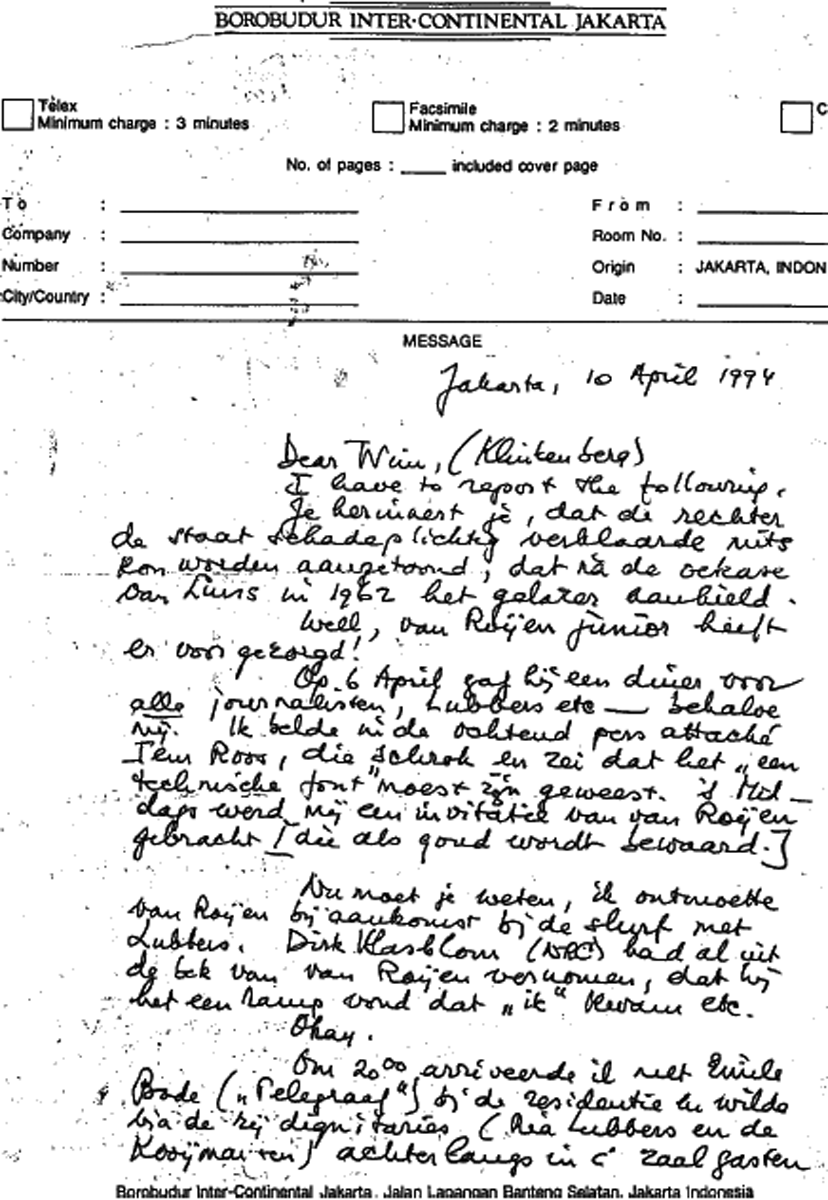 BOROBUDUR INTER·CONTINENTAL JAKARTA
Telex
Minimum charge : 3 minutes
Facsimile
Minimum charge : 2 minutes
C
No. of pages : ____ included cover page
To :
From :
Company :
Room No. :
Number :
Origin : JAKARTA, INDON
City/Country :
Date :
MESSAGE
Jakarta, 10 April 1994
Dear Wim, (Klinkenberg)
I have to report the following.
Je herinnert je, dat de rechter
de staat schadeplichtig verklaarde mits
kon worden aangetoond, dat na de oekase
van Luns in 1962 het gelazer aanhield.
Well, van Roÿen junior heeft
er voor gezorgd!
Op 6 April gaf hij een diner voor
alle journalisten, Lubbers etc — behalve
mij. Ik belde in de ochtend pers attaché
Roos, die schrok en zei dat het „een
technische fout" moest zijn geweest. 's Mid-
dags werd mij een invitatie van van Roÿen
gebracht [die als goud wordt bewaard.]
Nu moet je weten, ik ontmoette
van Roÿen bij aankomst bij de slurf met
Lubbers. Dirk Klasblom (NRC) had al uit
de bek van van Roÿen vernomen, dat hij
het een ramp vond dat „ik" kwam etc.
Okay.
Om 20⁰⁰ arriveerde ik met Emile
Bode („Telegraaf") bij de residentie en wilde
via de rij dignitaries (Ria Lubbers en de
Kooijmansen) achterlangs in zaal gasten
Borobudur Inter-Continental Jakarta, Jalan Lapangan Banteng Selatan, Jakarta Indonesia